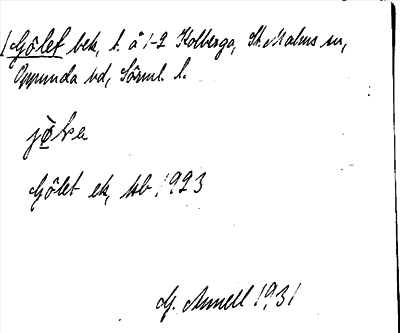 Gölet bek, l. å 1-2 Kolberga, St. Malms sn,
Oppunda hd, Sörml. l.
Gölet ek, 1923
G. Annell 1931